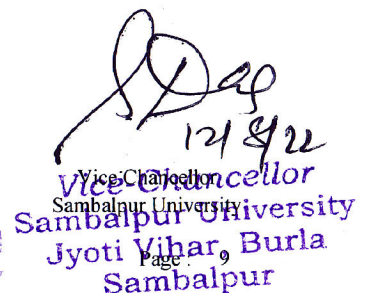 S Das
12/8/22
Vice-Chancellor
Sambalpur University
Vice-Chancellor
Sambalpur University
Jyoti Vihar, Burla
Page : 9
Sambalpur